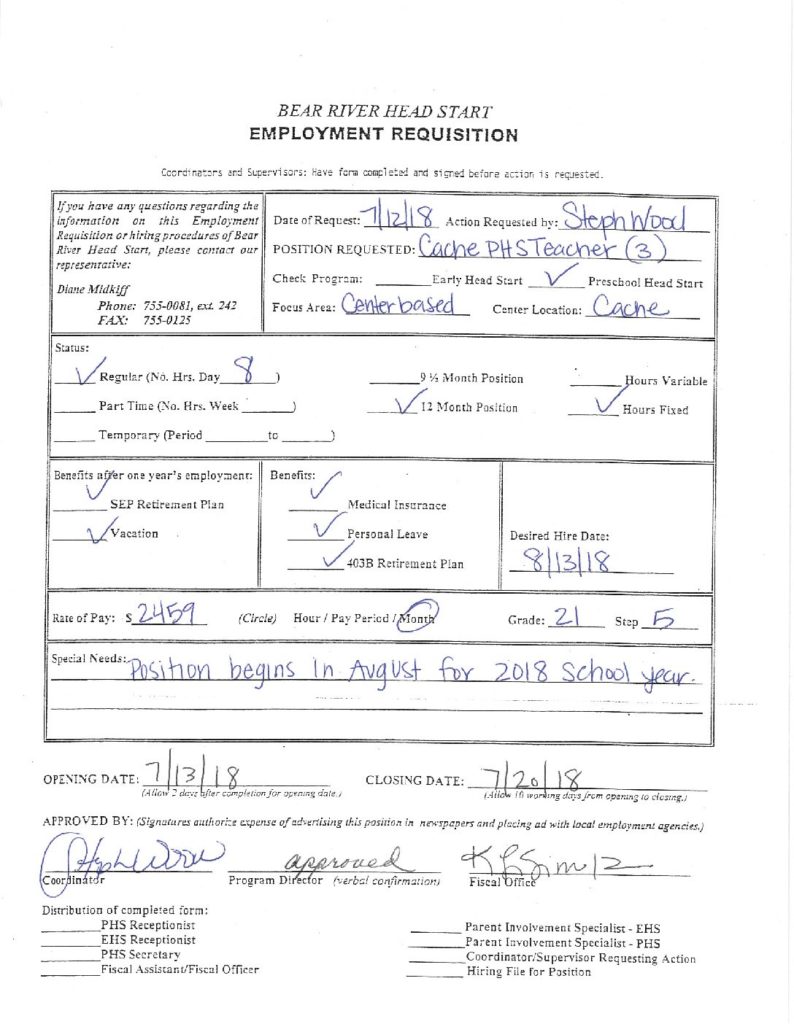 BEAR RIVER HEAD START
EMPLOYMENT REQUISITION
Coordinators and Supervisors: Have form completed and signed before action is requested.
If you have any questions regarding the
information on this Employment
Requisition or hiring procedures of Bear
River Head Start, please contact our
representative:
Diane Midkiff
Phone: 755-0081, ext. 242
FAX: 755-0125
Date of Request: 7/12/18 Action Requested by: Steph Wood
POSITION REQUESTED: Cache PHS Teacher (3)
Check Program: ______ Early Head Start __✓__ Preschool Head Start
Focus Area: Center based Center Location: Cache
Status:
✓ Regular (No. Hrs. Day 8 ) ______ 9 ½ Month Position ______ Hours Variable
______ Part Time (No. Hrs. Week ______) ✓ 12 Month Position ✓ Hours Fixed
______ Temporary (Period ______ to ______)
Benefits after one year's employment:
✓ SEP Retirement Plan
✓ Vacation
Benefits:
✓ Medical Insurance
✓ Personal Leave
✓ 403B Retirement Plan
Desired Hire Date:
8/13/18
Rate of Pay: $ 2459 (Circle) Hour / Pay Period / Month Grade: 21 Step 5
Special Needs: Position begins in August for 2018 school year.
OPENING DATE: 7/13/18 CLOSING DATE: 7/20/18
(Allow 2 days after completion for opening date.) (Allow 10 working days from opening to closing.)
APPROVED BY: (Signatures authorize expense of advertising this position in newspapers and placing ad with local employment agencies.)
Steph Wood approved
Coordinator Program Director (verbal confirmation) Fiscal Office
Distribution of completed form:
______ PHS Receptionist
______ EHS Receptionist
______ PHS Secretary
______ Fiscal Assistant/Fiscal Officer
______ Parent Involvement Specialist - EHS
______ Parent Involvement Specialist - PHS
______ Coordinator/Supervisor Requesting Action
______ Hiring File for Position